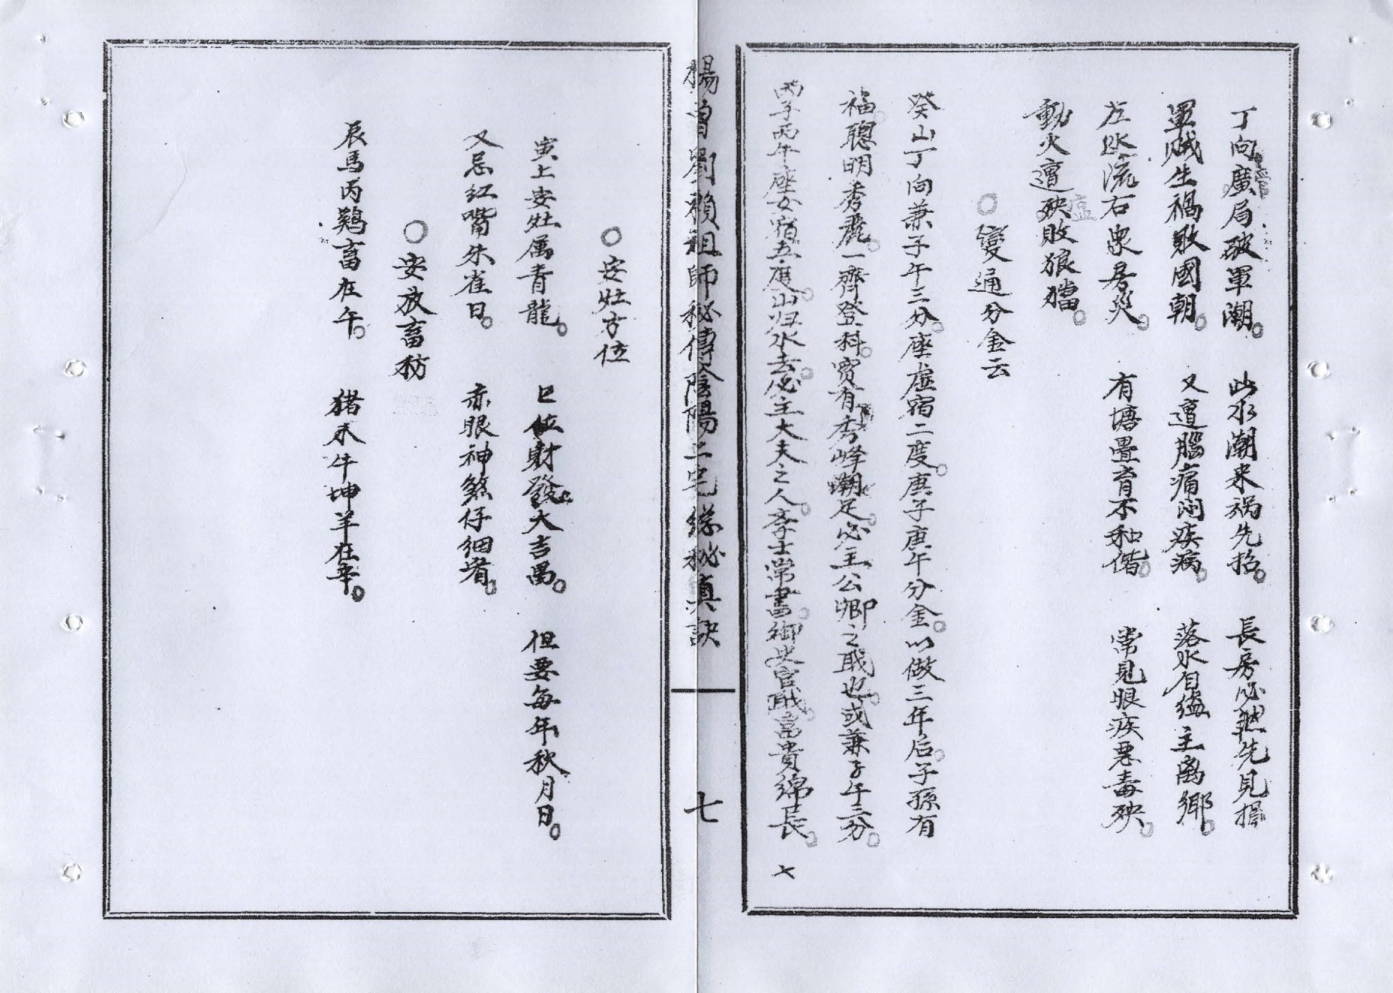 丁向廣局破軍潮。 此水潮来祸先招。 長房必然先見損
軍贼生禍敗國朝。 又遭腦痛悶疾病。 落水自缢主离鄉。
左水流右衆居災。 有塘疊育不和偕。 常見眼疾悪毒殃。
動火遭殃敗狼狽。
○變通分金云
癸山丁向兼子午三分。座虚宿二度。庚子庚午分金。以做三年后。子孫有
福。聰明秀麗。一齊登科。宾有秀峰潮足。必主公卿之戝也。或兼子午三分。
丙子丙午座女宿五度。山归水去。必主大夫之人。孝士常書。御史官戝。富貴綿長。
七
楊曾劉賴祖師秘傳陰陽二宅総秘真訣
七
○安灶方位
寅上安灶属青龍。 巳位財發大吉昌。 但要每年秋月日。
又忌红嘴朱雀日。 赤眼神煞仔细者。
○安放畜物
辰馬丙鷄畜在午。 猪禾牛坤羊在辛。